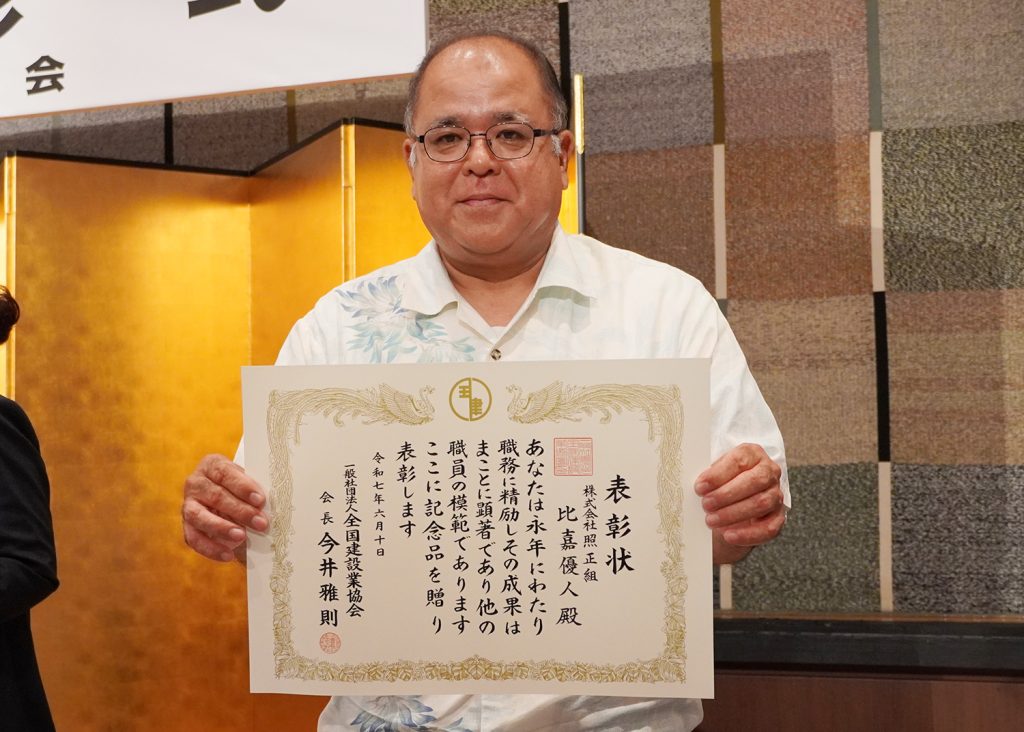 会
表彰状
株式会社照正組
比嘉優人殿
あなたは永年にわたり
職務に精励しその成果は
まことに顕著であり他の
職員の模範であります
ここに記念品を贈り
表彰します
令和七年六月十日
一般社団法人全国建設業協会
会長今井雅則